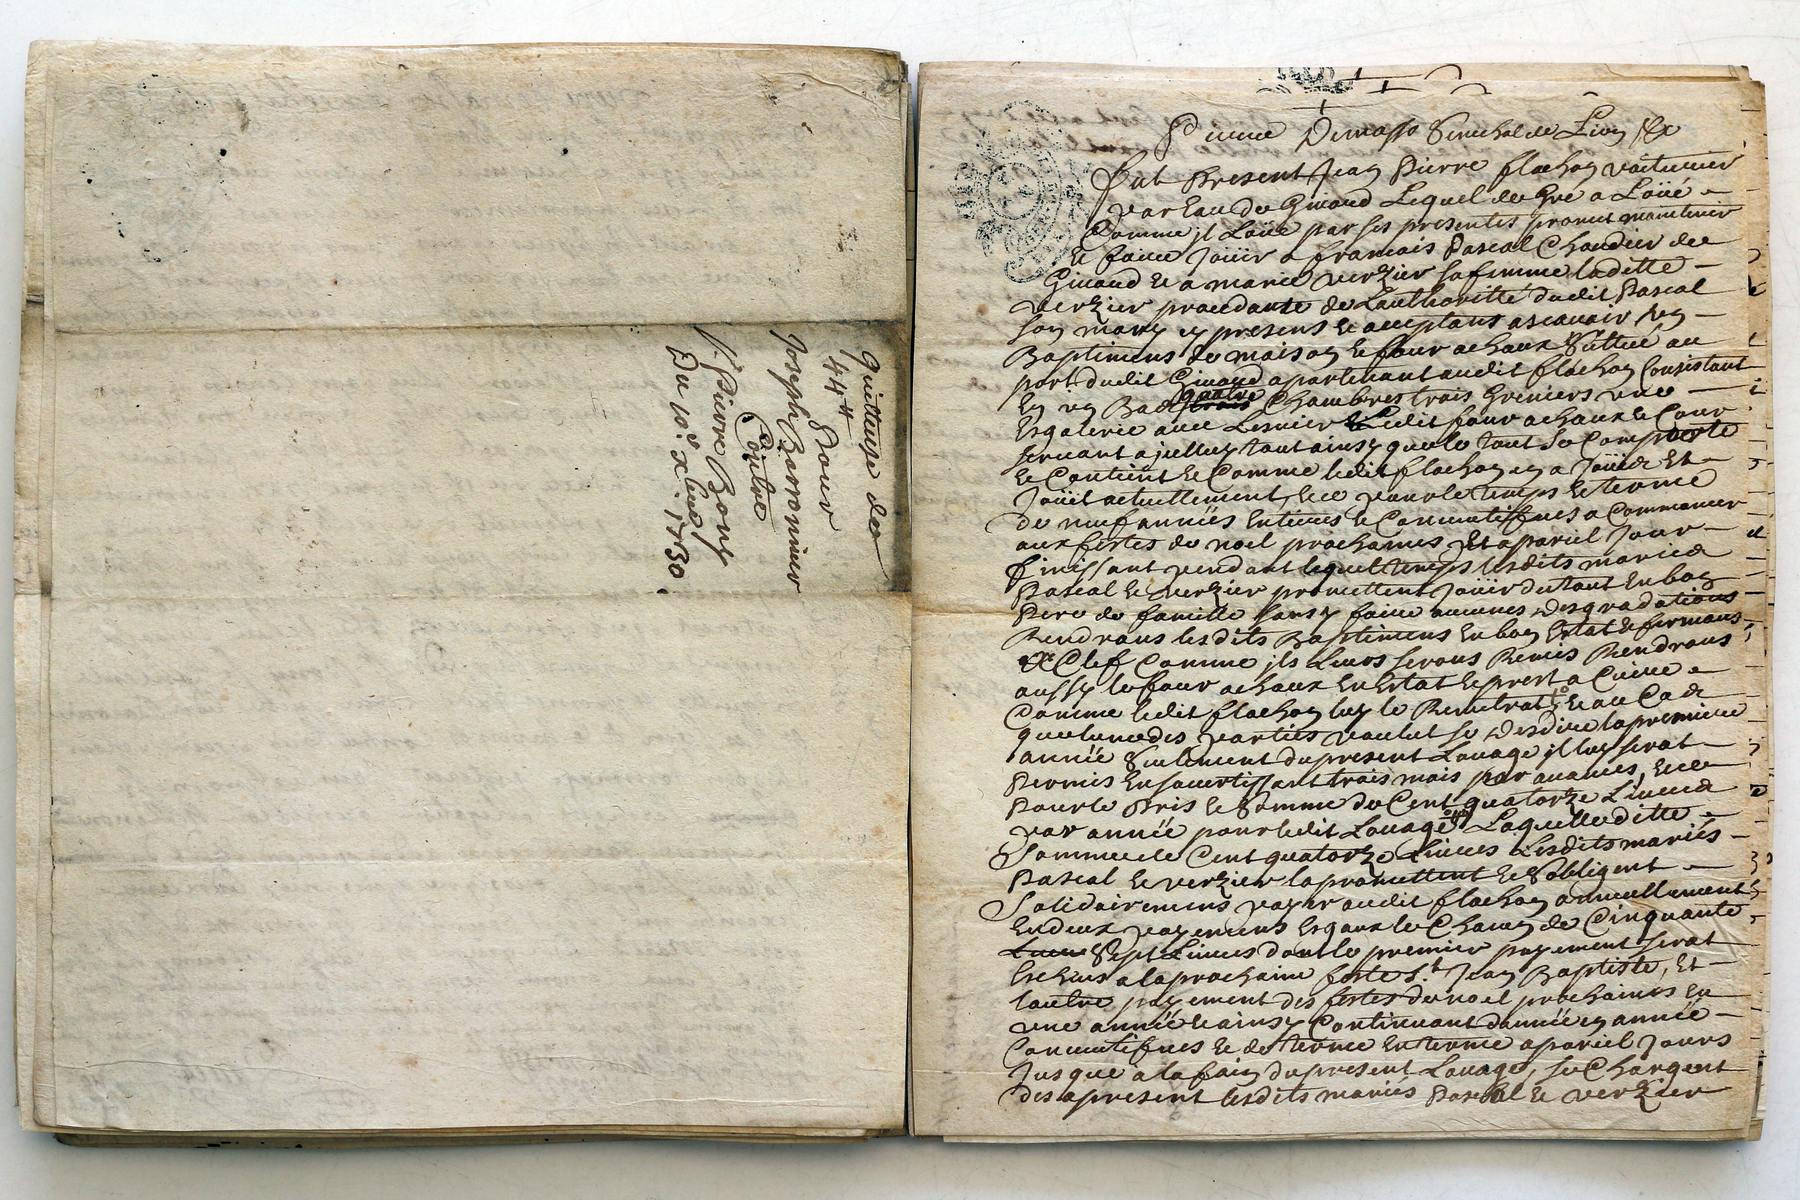 Quittance de
444 ll
Pour
Joseph Baronnier
Contre
J. Pierre Bony
Du 10e xbre 1730.
Senechal de Lion
Fut Present Jean Pierre flachon voiturier
par Eau de Givord Lequel de Gré a Loüé
Comme jl Loüe par ses presentes promet maintenir
Et faire Joüir a francois Pascal Chaudier de
Givord Et a marie verzier sa femme laditte
verzier procedante de Lauthoritté dudit Pascal
son mary cy presens Et acceptans ascavoir
Baptimens de maison Et four a chaux Scittué au
port dudit Givord apartenant audit flachon Consistant
En un Bas quatre trois Chambres trois Greniers une
Esgalerie avec Ledit four a chaux Et Cour
servant a jcelluy tout ainsy que le tout se Comporte
Et Contient Et Comme ledit flachon en a Joüit Et
Joüit actuellement, Et ce pour le temps Et terme
de neuf années Entieres Et Consecutifves a Commancer
aux festes de noel prochaines Et a pareil Jour
finissant pendant lequel temps lesdits mariés
Pascal Et verzier promettent Joüir du tout En bon
Pere de famille sans y faire aucunes Desgradations
Rendrons lesdits Baptimens En bon Estat Et fermans
a Clef Comme jls Leurs serons Remis Rendrons
aussy le four a chaux En Estat Et prest a Cuire
Comme ledit flachon luy le Remettrat, Et au Cas
que lune des parties voulut se Desdire la premiere
année Seulement du present Louage jl luy serat
Permis En savertissant trois mois par avances, Et ce
Pour le Pris Et Somme de Cent quatorze Livres
par année pour ledit Louage Laquelle ditte
Somme de Cent quatorze Livres Lesdits mariés
Pascal Et verzier la promettent Et Sobligent
Solidairemens payer audit flachon annuellement
En deux payemens Esgaux de Chacun de Cinquante
Sept Livres dont le premier payement serat
Escheus a la prochaine feste St Jean Baptiste, Et
lautre payement des festes de noel prochaines En
une année Et ainsy Continuant dannée en année
Consecutifves Et de terme En terme a pareil Jours
Jusque a la fain du present Louage, se Chargent
des apresent lesdits mariés Pascal Et verzier